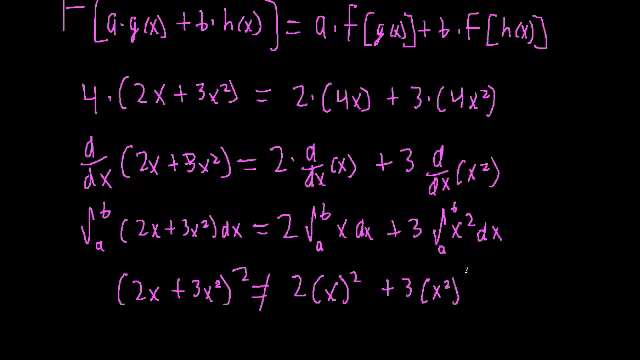 F[a·g(x) + b·h(x)] = a·f[g(x)] + b·F[h(x)]
4·(2x + 3x²) = 2·(4x) + 3·(4x²)
d/dx (2x + 3x²) = 2·d/dx (x) + 3 d/dx (x²)
∫ₐᵇ (2x + 3x²) dx = 2 ∫ₐᵇ x dx + 3 ∫ₐᵇ x² dx
(2x + 3x²)² ≠ 2(x)² + 3(x²)